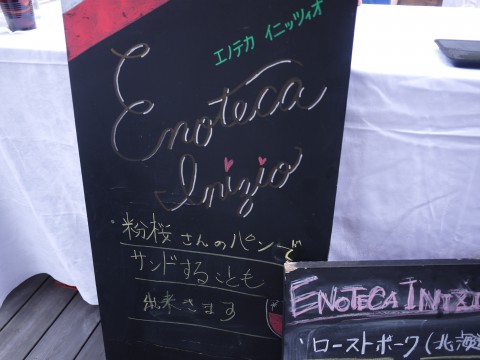 エノテカ イニッツィオ
Enoteca
Inizio
・粉桜さんのパンで
サンドすることも
出来さます
ENOTECA INIZI
ローストポーク(北海道